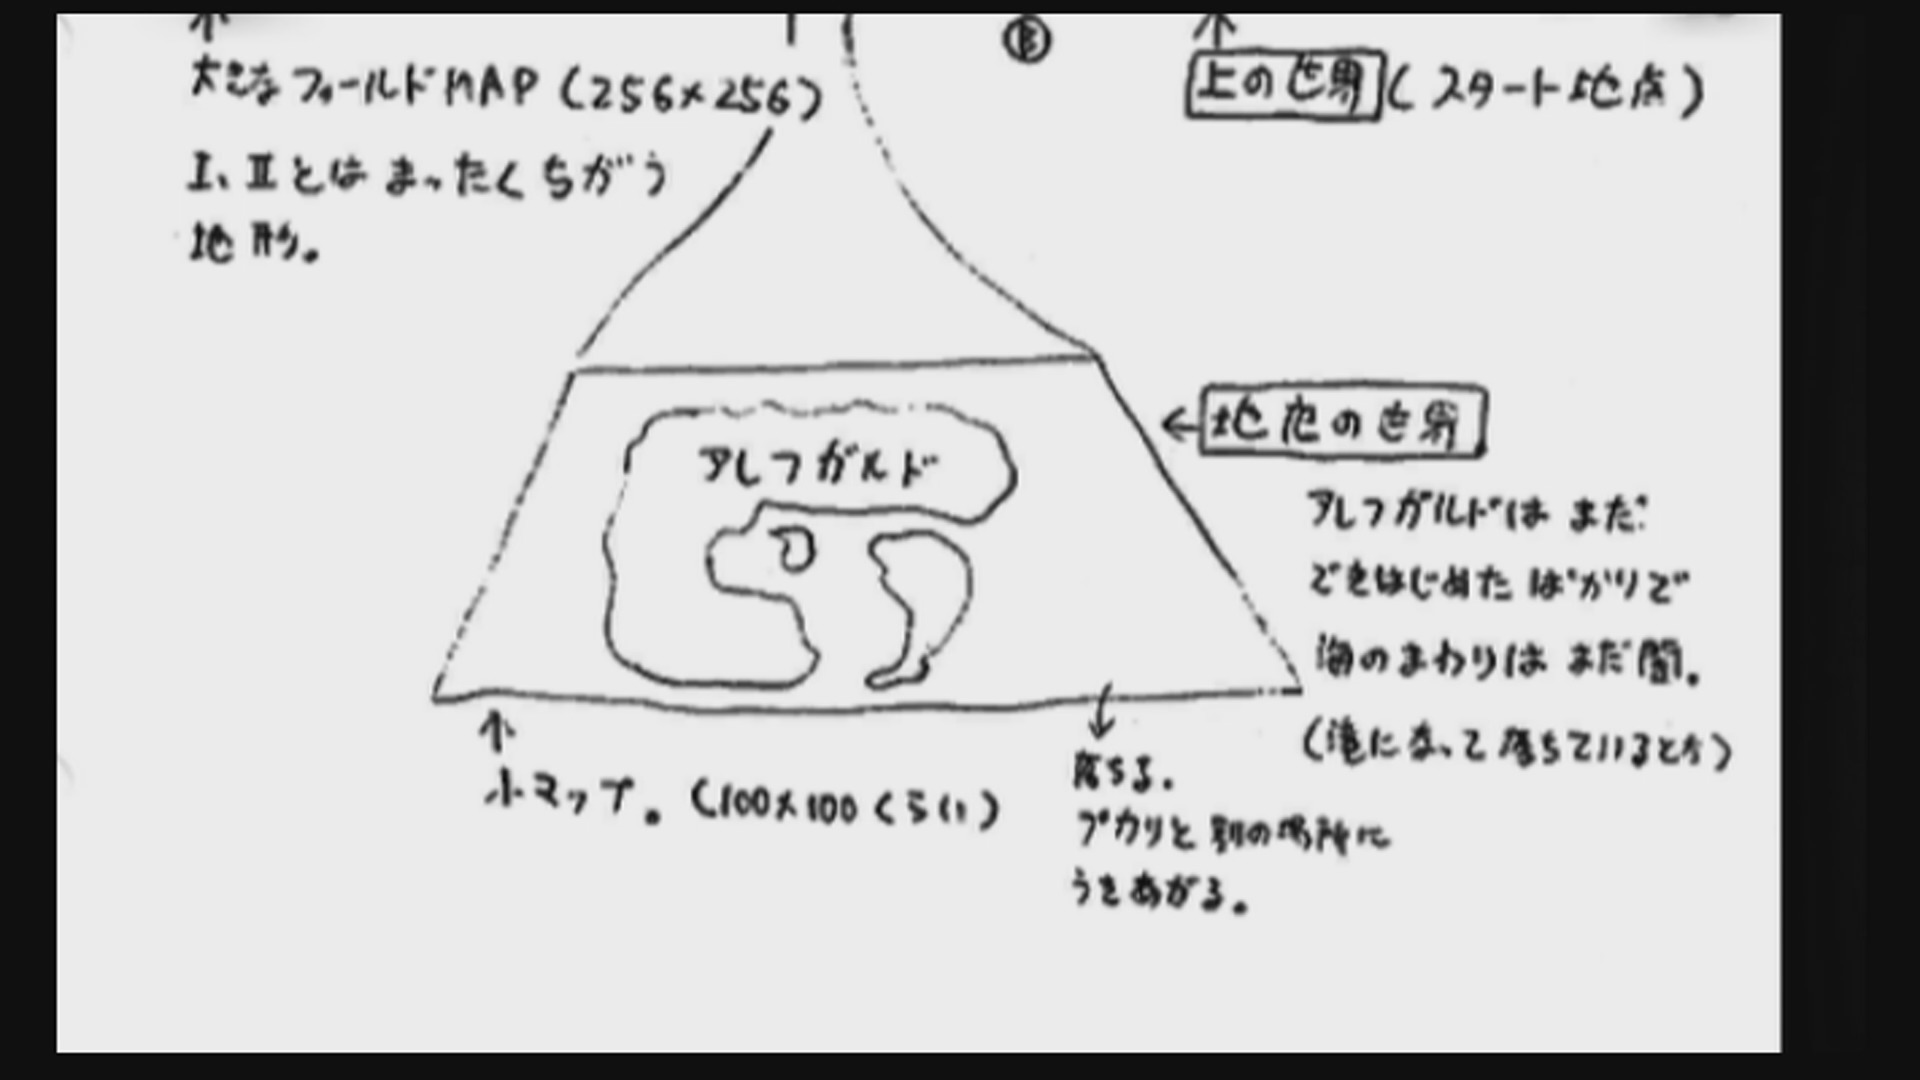 Ⓑ
大きなフィールドMAP(256×256)
Ⅰ、Ⅱとは まったくちがう
地形。
上の世界(スタート地点)
アレフガルド
地底の世界
アレフガルドは まだ
できはじめた ばかりで
海のまわりは まだ闇。
(滝になって 落ちているとか)
小マップ。(100×100くらい)
落ちる。
プカリと 別の場所に
うきあがる。